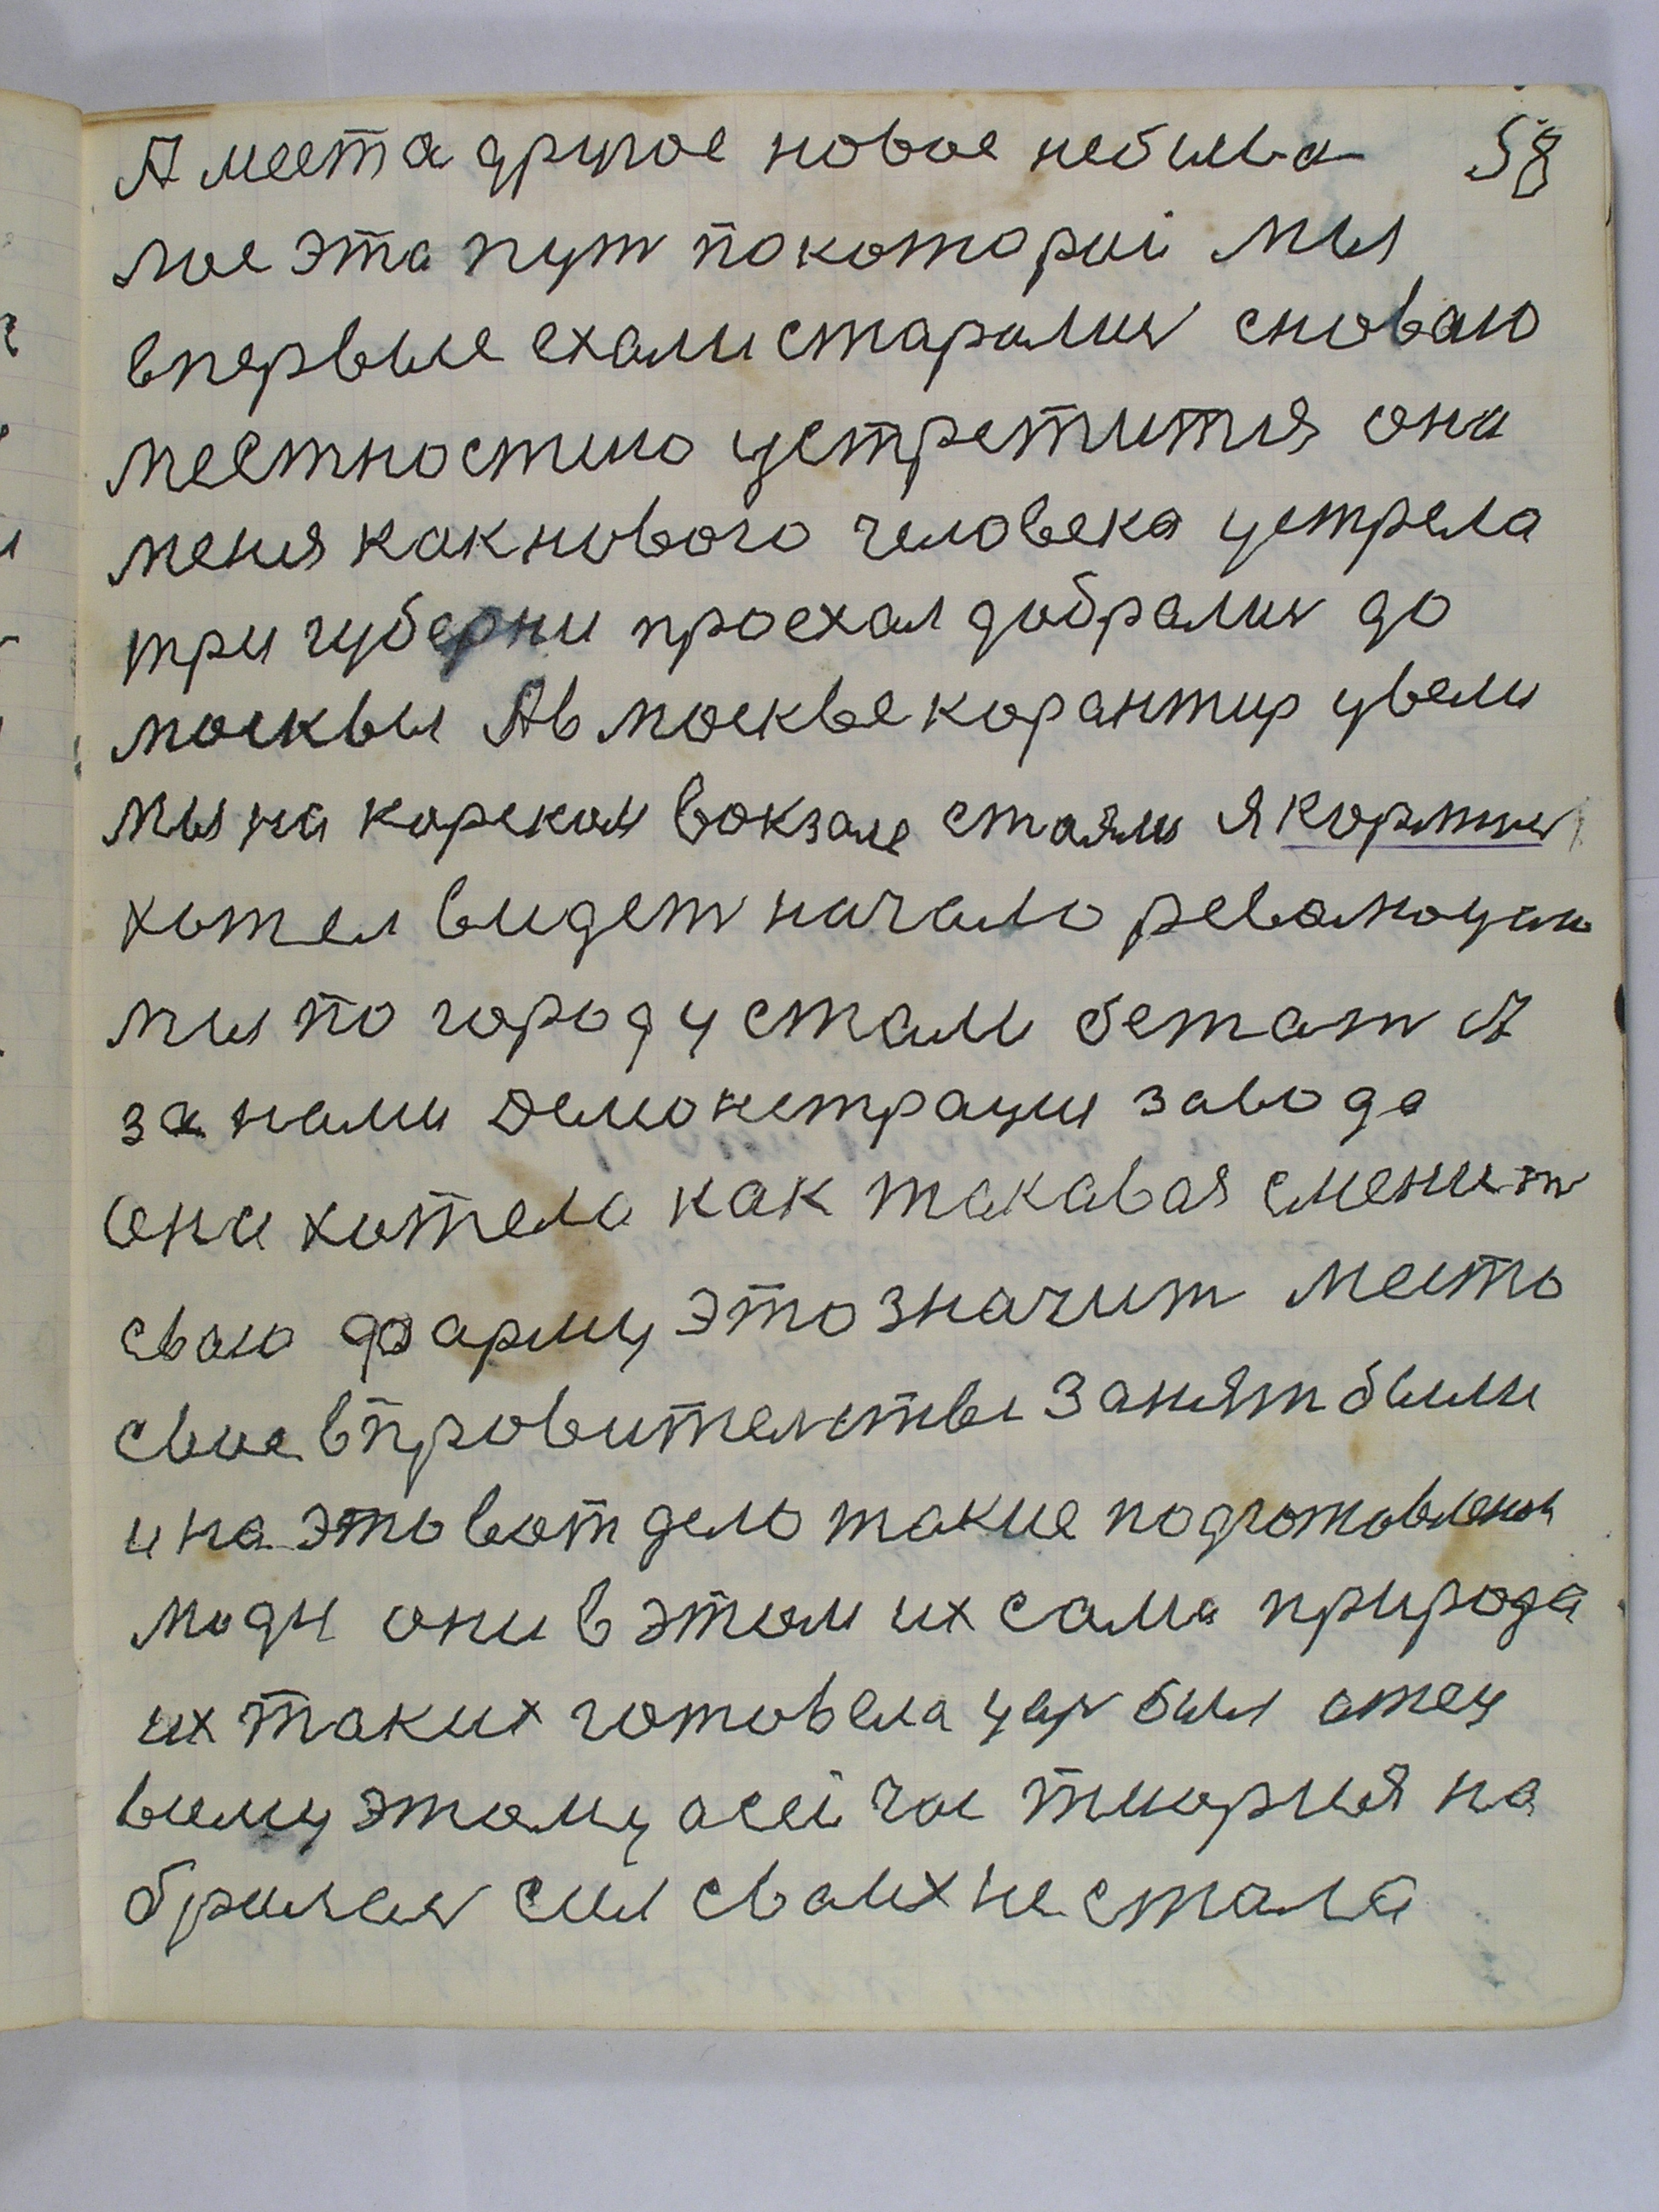 А места другое новое небыва 58
лое эта пут покоторій мы
впервые ехали старались сноваю
местностию устретится она
меня какнового человека устрела
три губерни проехал добрались до
москвы А в москве карантир увели
мы на курском вокзале стояли я
хотел видеть начало революции
мы по городу стали бегат А
за нами демонстрации завода
она хотела как таковая сменить
сваю фарму это значит место
свое в провителстве занят были
и на это вот дело такие подготовлены
люди они в этом их сама природа
их таких готовела царь был отец
всему этому а сейчас тиория на
брилась сил сваих не стала